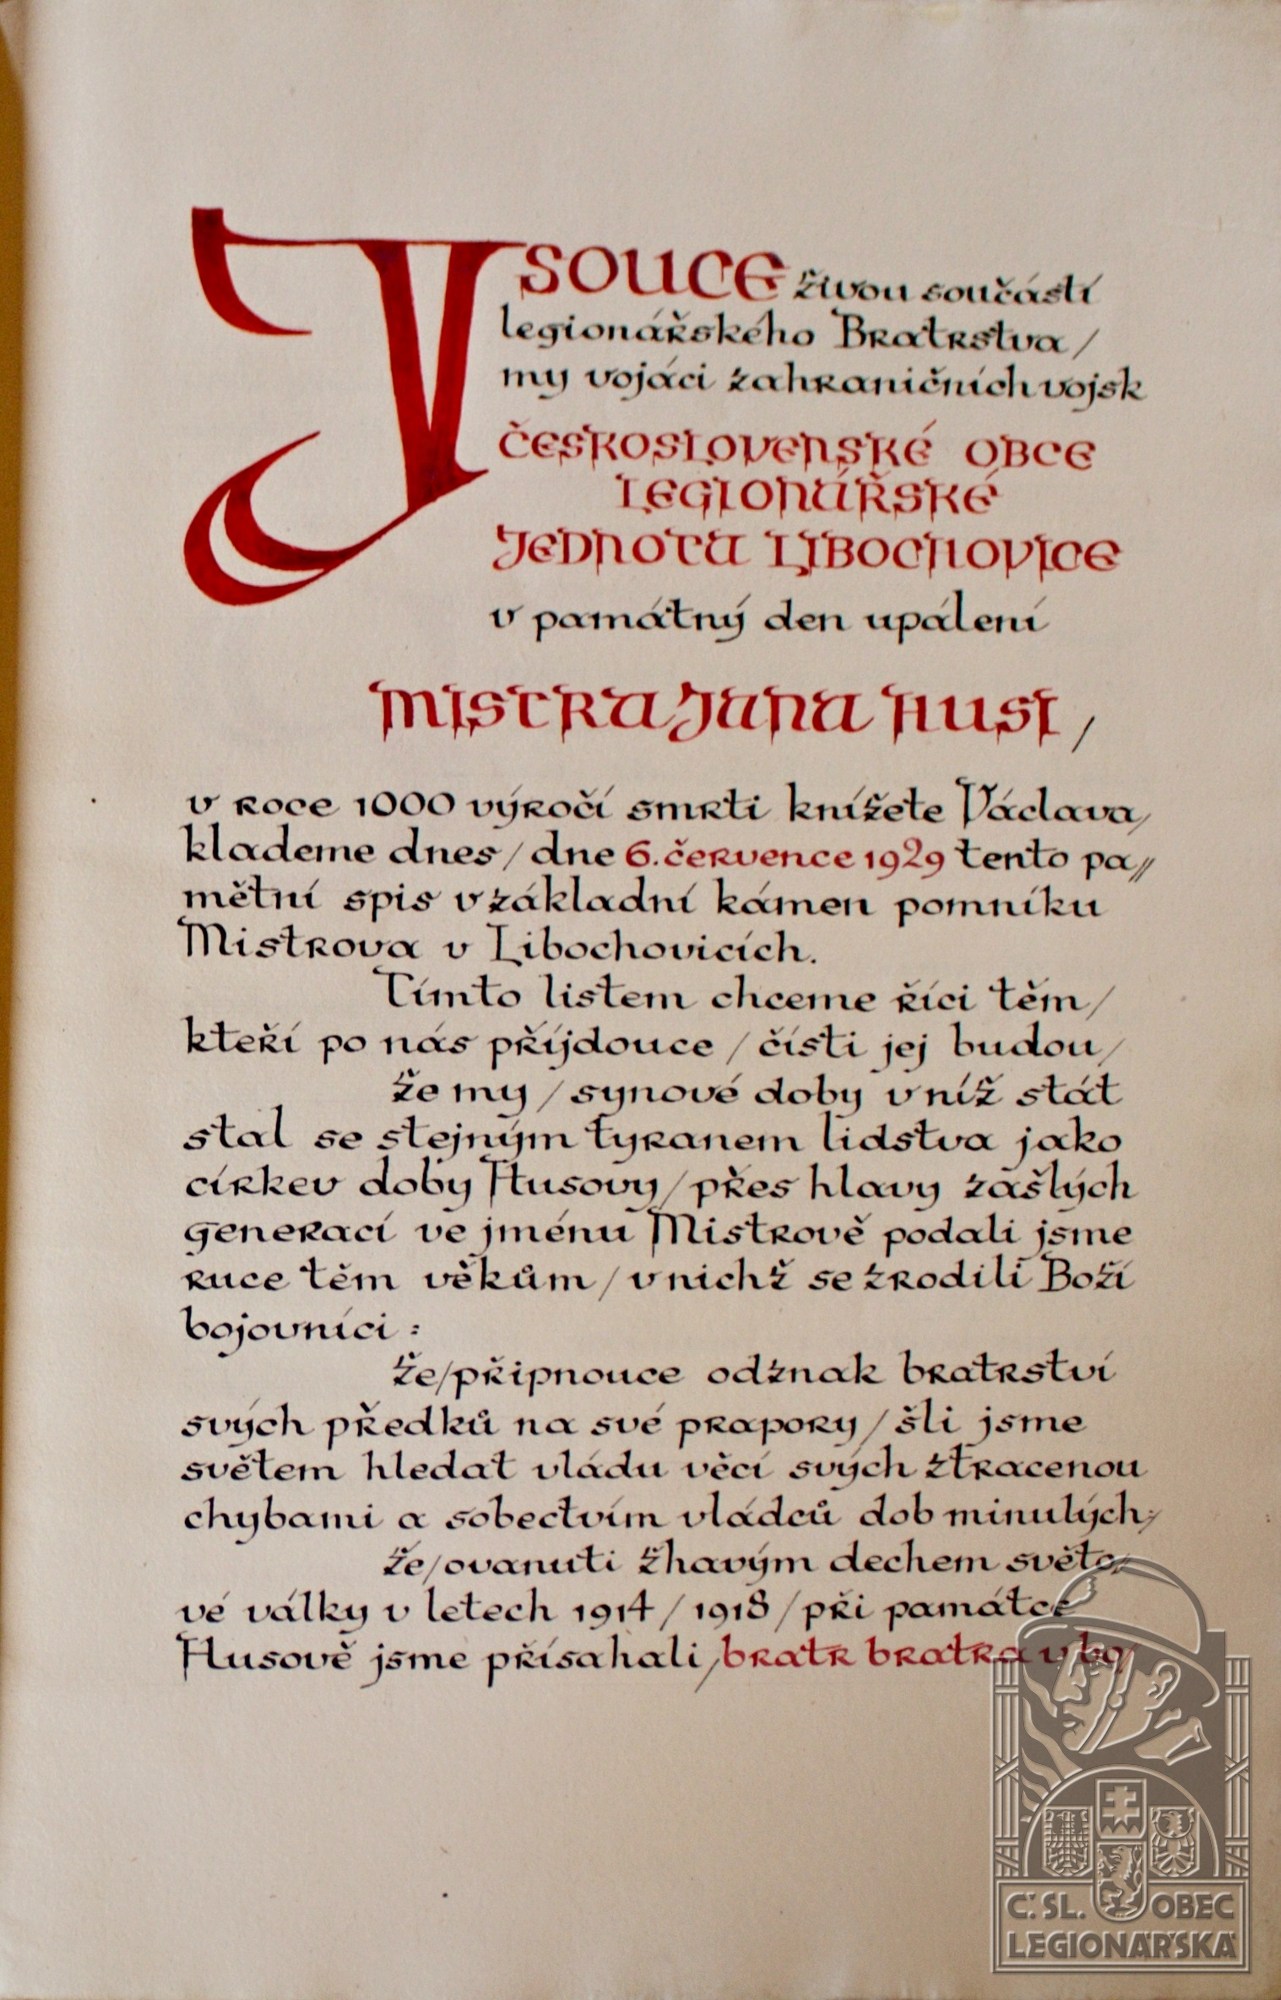 JSOUCE živou součástí
legionářského Bratrstva/
my vojáci zahraničních vojsk
ČESKOSLOVENSKÉ OBCE
LEGIONÁŘSKÉ
JEDNOTA LIBOCHOVICE
v památný den upálení
MISTRA JANA HUSI/
v roce 1000 výročí smrti knížete Václava/
klademe dnes/ dne 6. července 1929 tento pa//
mětní spis v základní kámen pomníku
Mistrova v Libochovicích.
Tímto listem chceme říci těm/
kteří po nás příjdouce/ čísti jej budou/
že my/ synové doby v níž stát
stal se stejným tyranem lidstva jako
církev doby Husovy/ přes hlavy zašlých
generací ve jménu Mistrově podali jsme
ruce těm věkům/ v nichž se zrodili Boží
bojovníci:
že/ připnouce odznak bratrství
svých předků na své prapory/ šli jsme
světem hledat vládu věcí svých ztracenou
chybami a sobectvím vládců dob minulých;
že/ ovanuti žhavým dechem světo/
vé války v letech 1914/1918/ při památce
Husově jsme přísahali/ bratr bratra v bo/
Č.SL. OBEC
LEGIONÁŘSKÁ